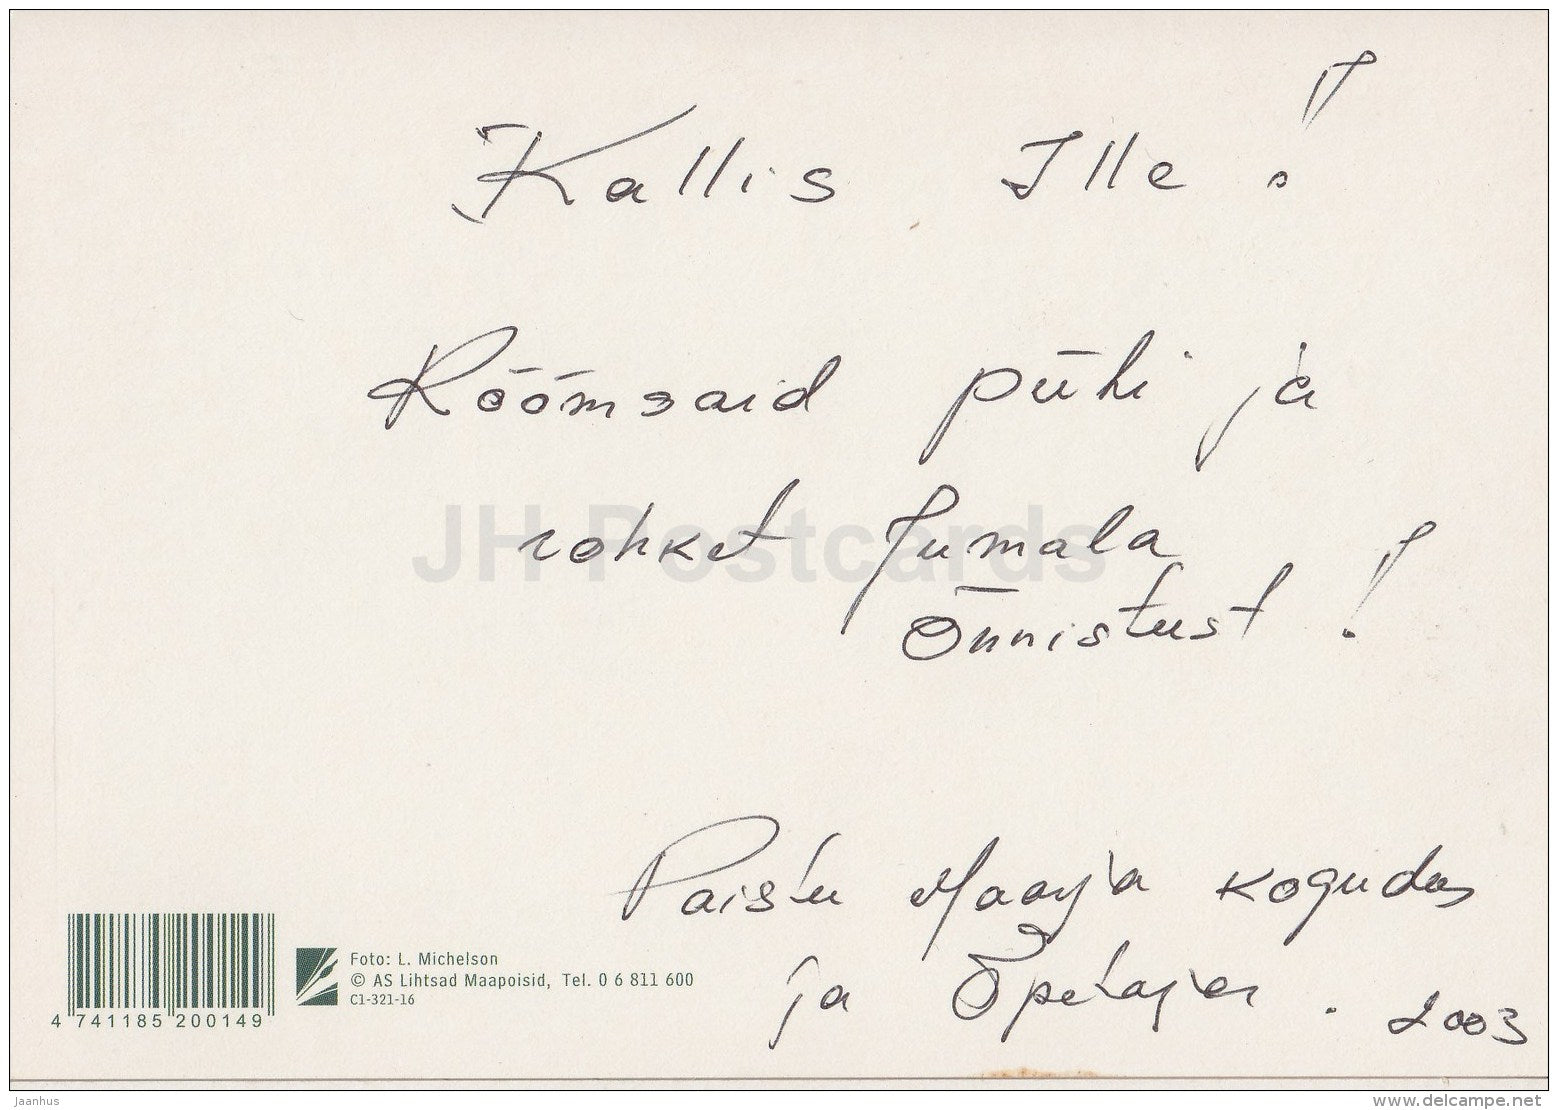 Kallis Ille!
Rõõmsaid pühi ja
rohket Jumala
Õnnistust!
Paistu Maarja kogudus
ja Õpetaja. 2003
Foto: L. Michelson
© AS Lihtsad Maapoisid, Tel. 0 6 811 600
C1-321-16
4 741185 200149
JH Postcards
Jaanhus
www.delcampe.net